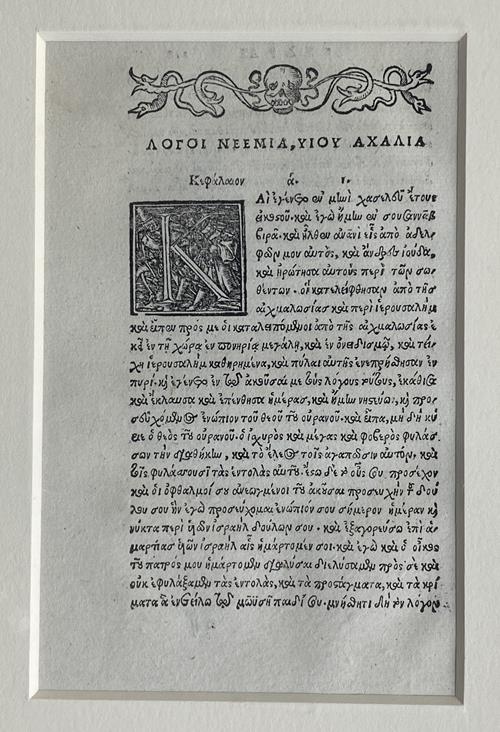 ΛΟΓΟΙ ΝΕΕΜΙΑ, ΥΙΟΥ ΑΧΑΛΙΑ
Κεφάλαιον α. Ι.
ΚΑὶ ἐγένετο ἐν μηνὶ χασελεῦ ἔτους
εἰκοσοῦ. καὶ ἐγὼ ἤμην ἐν σουσαναβ
βιρά. καὶ ἦλθεν ἀνανὶ εἷς ἀπὸ ἀδελ
φῶν μου αὐτὸς, καὶ ἄνδρες ἰούδα,
καὶ ἠρώτησα αὐτοὺς περὶ τῶν σω
θέντων. οἳ κατελείφθησαν ἀπὸ τῆς
αἰχμαλωσίας καὶ περὶ ἱερουσαλήμ
καὶ εἶπαν πρός με οἱ καταλειπόμενοι ἀπὸ τῆς αἰχμαλωσίας ἐ
κεῖ ἐν τῇ χώρᾳ ἐν πονηρίᾳ μεγάλῃ, καὶ ἐν ὀνειδισμῷ, καὶ τεί
χη ἱερουσαλήμ καθῃρημένα, καὶ πύλαι αὐτῆς ἐνεπρήσθησαν ἐν
πυρί. καὶ ἐγένετο ἐν τῷ ἀκοῦσαί με τοὺς λόγους τούτους, ἐκάθισα
καὶ ἔκλαυσα καὶ ἐπένθησα ἡμέρας, καὶ ἤμην νηστεύων, καὶ προ
σευχόμενος ἐνώπιον τοῦ θεοῦ τοῦ οὐρανοῦ. καὶ εἶπα, μὴ δὴ κύ
ριε ὁ θεὸς τοῦ οὐρανοῦ. ὁ ἰσχυρὸς καὶ μέγας καὶ φοβερὸς φυλάσ
σων τὴν διαθήκην, καὶ τὸ ἔλεος τοῖς ἀγαπῶσιν αὐτόν, καὶ
τοῖς φυλάσσουσι τὰς ἐντολὰς αὐτοῦ. ἔσω δὲ τὸ οὖς σου προσέχον
καὶ οἱ ὀφθαλμοί σου ἀνεῳγμένοι τοῦ ἀκοῦσαι προσευχὴν τοῦ δού
λου σου ἣν ἐγὼ προσεύχομαι ἐνώπιόν σου σήμερον ἡμέραν καὶ
νύκτα περὶ υἱῶν ἰσραὴλ δούλων σου. καὶ ἐξαγορεύσω ἐπὶ ἁ
μαρτίαις υἱῶν ἰσραὴλ αἷς ἡμάρτομέν σοι. καὶ ἐγὼ καὶ ὁ οἶκος
τοῦ πατρός μου ἡμάρτομεν διαλύσαι διελύσαμεν πρὸς σὲ καὶ
οὐκ ἐφυλάξαμεν τὰς ἐντολὰς, καὶ τὰ προστάγματα, καὶ τὰ κρί
ματα ἃ ἐνετείλω τῷ μωϋσῇ παιδί σου. μνήσθητι δὴ τὸν λόγον